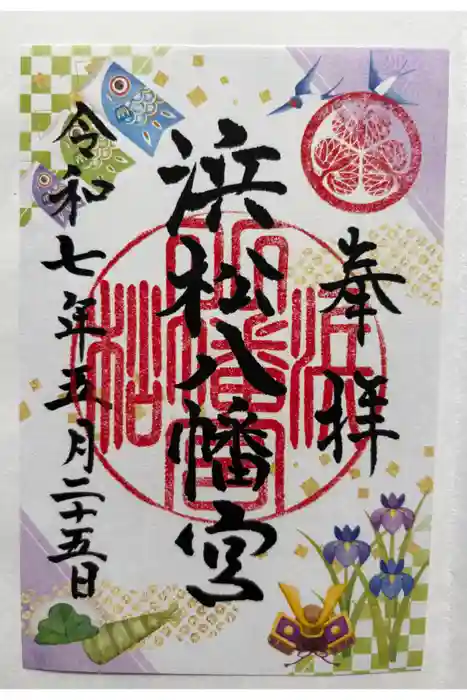 奉拝
浜松八幡宮
令和七年五月二十五日
浜松八幡宮